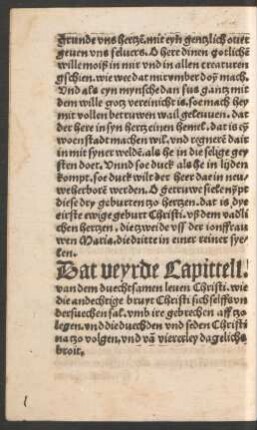 grunde vns hertzē. mit eyn gentzlich ouer
geuen vns seluers. O here dinen gotlichē
wille moiß in mir vnd in allen creaturen
gschien. wie wee dat mir vmber doy mach.
Vnd als eyn mynsche dan sus gantz mit
dem wille gotz vereinicht is. soe mach hey
mit vollen betruwen wail geleuuen. dat
der here in syn hertz einen hemel. dat is ey
woenstadt machen wil. vnd rignerē dair
in mit syner weldē. als he in die selige gey
sten doet. Vnnd soe duck als he in lijden
kompt. soe duck wilt der heer dae in neu
weherborē werden. O getruwe siele nypt
diese dry geburten zo hertzen. dat is dye
eirste ewige geburt Christi. vß dem vadli
chen hertzen. die tzweide vß der ionffrau
wen Maria. die dritte in einer reiner sye-
len.
Dat veyrde Capittell.
van dem duechtsamen leuen Christi. wie
die andechtige bruyt Christi sich selffs vn
dersuechen sal. vmb ire gebrechen aff tzo
legen. vnd die duechden vnd seden Christi
na tzo volgen. vnd vā vierreley dagelichs
broit.